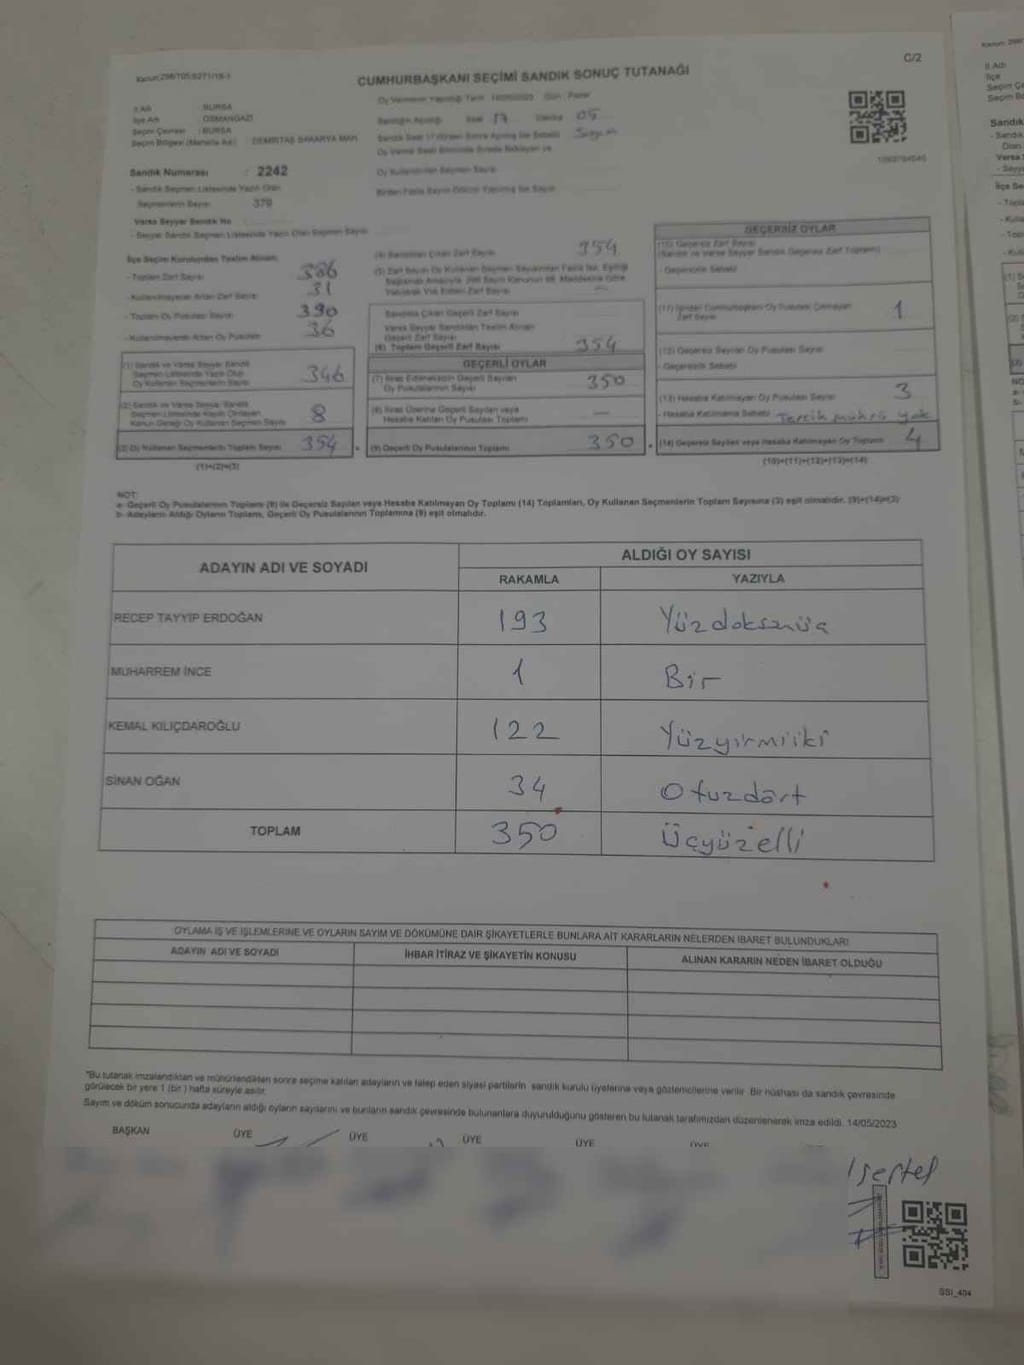 Kanun:298/105;6271/19-1
C/2
CUMHURBAŞKANI SEÇİMİ SANDIK SONUÇ TUTANAĞI
İl Adı : BURSA
İlçe Adı : OSMANGAZİ
Seçim Çevresi : BURSA
Seçim Bölgesi (Mahalle Adı) : DEMİRTAŞ SAKARYA MAH.
Oy Vermenin Yapıldığı Tarih 14/05/2023 Gün : Pazar
Sandığın Açıldığı Saat 17 Dakika 05
Sandık Saat 17.00'den Sonra Açılmış İse Sebebi Sayım
Oy Verme Saati Bitiminde Sırada Bekleyen ve
Oy Kullandırılan Seçmen Sayısı
Birden Fazla Sayım Döküm Yapılmış İse Sayısı
Sandık Numarası : 2242
- Sandık Seçmen Listesinde Yazılı Olan
Seçmenlerin Sayısı 379
Varsa Seyyar Sandık No
- Seyyar Sandık Seçmen Listesinde Yazılı Olan Seçmen Sayısı
İlçe Seçim Kurulundan Teslim Alınan;
- Toplam Zarf Sayısı 386
- Kullanılmayarak Artan Zarf Sayısı 31
- Toplam Oy Pusulası Sayısı 390
- Kullanılmayarak Artan Oy Pusulası 36
(1) Sandık ve Varsa Seyyar Sandık
Seçmen Listesinde Yazılı Olup
Oy Kullanan Seçmenlerin Sayısı 346
(2) Sandık ve Varsa Seyyar Sandık
Seçmen Listesinde Kaydı Olmayan
Kanun Gereği Oy Kullanan Seçmen Sayısı 8
(3) Oy Kullanan Seçmenlerin Toplam Sayısı 354
(1)+(2)=(3)
(4) Sandıktan Çıkan Zarf Sayısı 354
(5) Zarf Sayısı Oy Kullanan Seçmen Sayısından Fazla İse, Eşitliği
Sağlamak Amacıyla, 298 Sayılı Kanunun 98. Maddesine Göre
Yakılarak Yok Edilen Zarf Sayısı
Sandıkta Çıkan Geçerli Zarf Sayısı
Varsa Seyyar Sandıktan Teslim Alınan
Geçerli Zarf Sayısı
(6) Toplam Geçerli Zarf Sayısı 354
GEÇERLİ OYLAR
(7) İtiraz Edilmeksizin Geçerli Sayılan
Oy Pusulalarının Sayısı 350
(8) İtiraz Üzerine Geçerli Sayılan veya
Hesaba Katılan Oy Pusulaları Toplamı —
(9) Geçerli Oy Pusulalarının Toplamı 350
GEÇERSİZ OYLAR
(10) Geçersiz Zarf Sayısı
(Sandık ve Varsa Seyyar Sandık Geçersiz Zarf Toplamı)
- Geçersizlik Sebebi
(11) İçinden Cumhurbaşkanı Oy Pusulası Çıkmayan
Zarf Sayısı 1
(12) Geçersiz Sayılan Oy Pusulası Sayısı
- Geçersizlik Sebebi
(13) Hesaba Katılmayan Oy Pusulası Sayısı 3
- Hesaba Katılmama Sebebi Tercih mührü yok
(14) Geçersiz Sayılan veya Hesaba Katılmayan Oy Toplamı 4
(10)+(11)+(12)+(13)=(14)
NOT:
a- Geçerli Oy Pusulalarının Toplamı (9) ile Geçersiz Sayılan veya Hesaba Katılmayan Oy Toplamı (14) Toplamları, Oy Kullanan Seçmenlerin Toplam Sayısına (3) eşit olmalıdır. (9)+(14)=(3)
b- Adayların Aldığı Oyların Toplamı, Geçerli Oy Pusulalarının Toplamına (9) eşit olmalıdır.
ADAYIN ADI VE SOYADI
ALDIĞI OY SAYISI
RAKAMLA YAZIYLA
RECEP TAYYİP ERDOĞAN 193 Yüzdoksanüç
MUHARREM İNCE 1 Bir
KEMAL KILIÇDAROĞLU 122 Yüzyirmiiki
SİNAN OĞAN 34 Otuzdört
TOPLAM 350 Üçyüzelli
OYLAMA İŞ VE İŞLEMLERİNE VE OYLARIN SAYIM VE DÖKÜMÜNE DAİR ŞİKAYETLERLE BUNLARA AİT KARARLARIN NELERDEN İBARET BULUNDUKLARI
ADAYIN ADI VE SOYADI İHBAR İTİRAZ VE ŞİKAYETİN KONUSU ALINAN KARARIN NEDEN İBARET OLDUĞU
"Bu tutanak imzalandıktan ve mühürlendikten sonra seçime katılan adayların ve talep eden siyasi partilerin sandık kurulu üyelerine veya gözlemcilerine verilir. Bir nüshası da sandık çevresinde
görülecek bir yere 1 (bir) hafta süreyle asılır.
Sayım ve döküm sonucunda adayların aldığı oyların sayılarını ve bunların sandık çevresinde bulunanlara duyurulduğunu gösteren bu tutanak tarafımızdan düzenlenerek imza edildi. 14/05/2023
BAŞKAN ÜYE ÜYE ÜYE ÜYE ÜYE
SSI_404